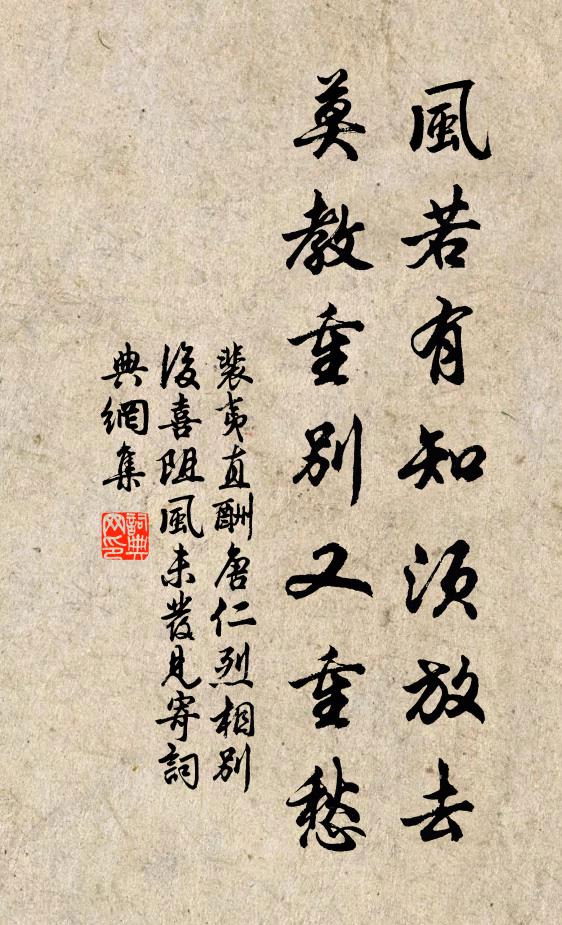 風若有知須放去
莫教重別又重愁
裴夷直酬唐仁烈相別
後喜阻風未發見寄詞
典網集
詞典
网印